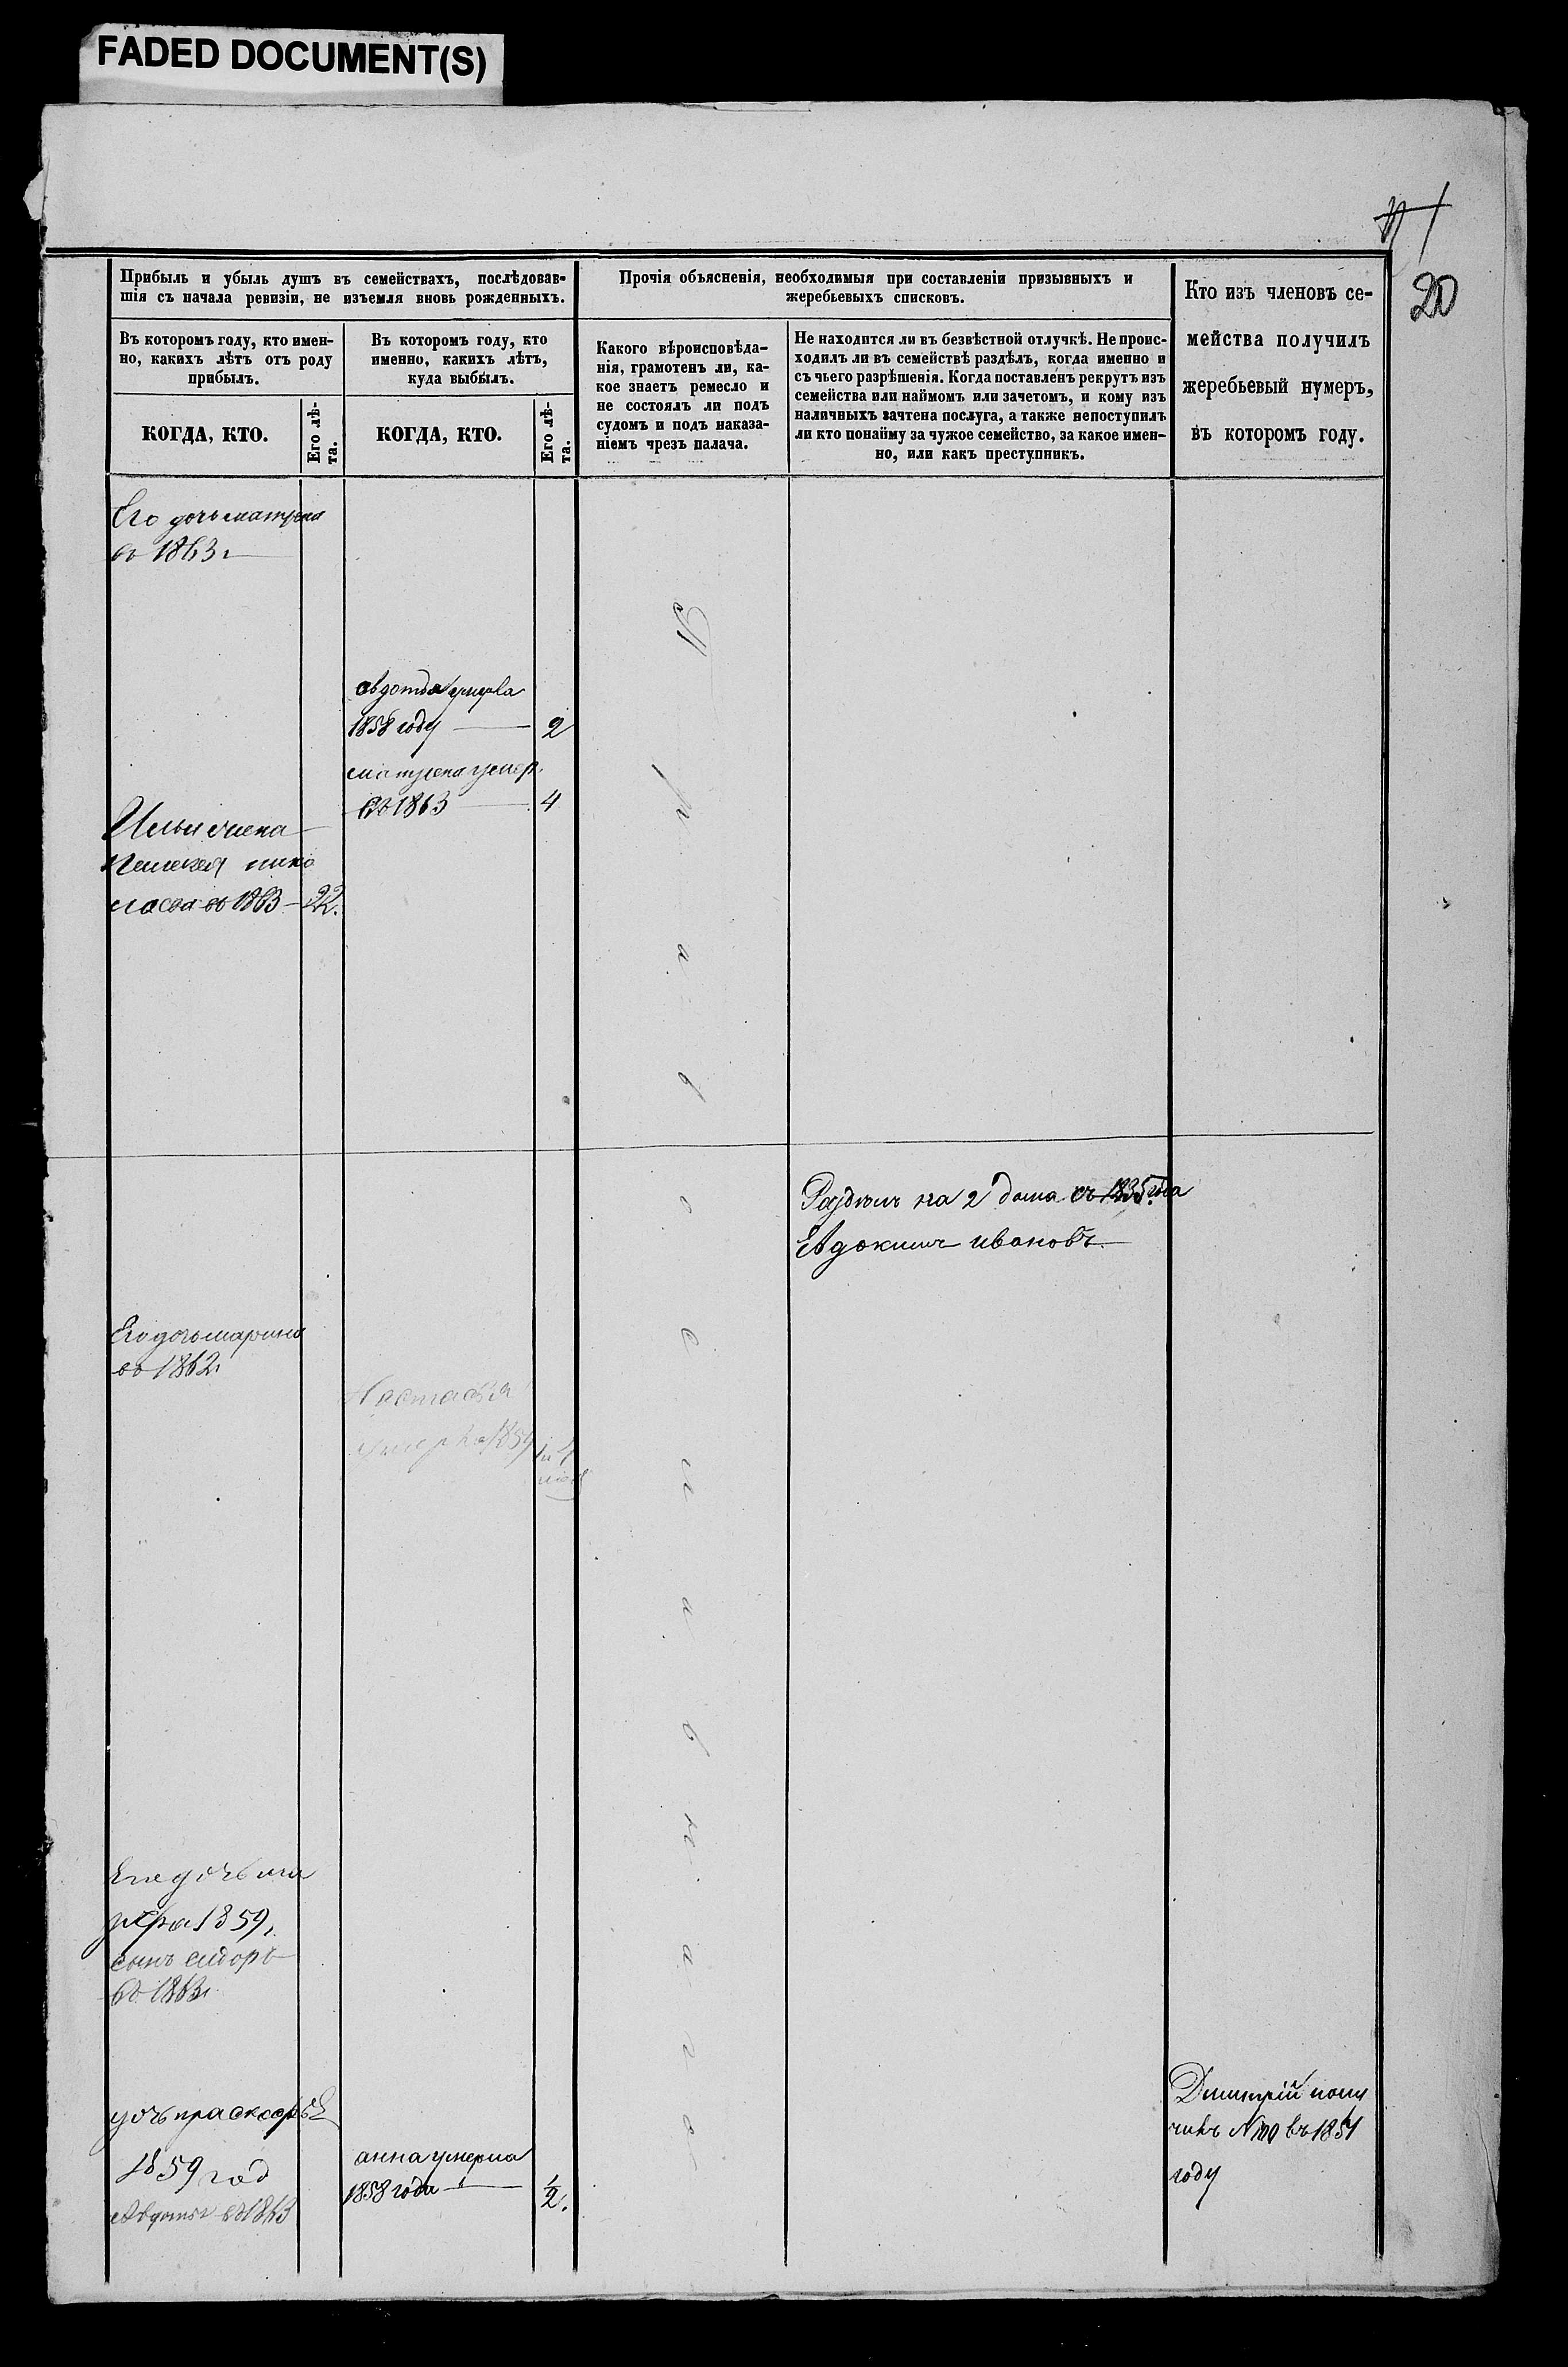 FADED DOCUMENT(S)
20
Прибыль и убыль душъ въ семействахъ, послѣдовав-
шія съ начала ревизіи, не изъемля вновь рожденныхъ.
Въ которомъ году, кто имен-
но, какихъ лѣтъ отъ роду
прибылъ.
КОГДА, КТО.
Его лѣ-
та.
Въ которомъ году, кто
именно, какихъ лѣтъ,
куда выбылъ.
КОГДА, КТО.
Его лѣ-
та.
Прочія объясненія, необходимыя при составленіи призывныхъ и
жеребьевыхъ списковъ.
Какого вѣроисповѣда-
нія, грамотенъ ли, ка-
кое знаетъ ремесло и
не состоялъ ли подъ
судомъ и подъ наказа-
ніемъ чрезъ палача.
Не находится ли въ безвѣстной отлучкѣ. Не проис-
ходилъ ли въ семействѣ раздѣлъ, когда именно и
съ чьего разрѣшенія. Когда поставленъ рекрутъ изъ
семейства или наймомъ или зачетомъ, и кому изъ
наличныхъ зачтена послуга, а также непоступилъ
ли кто понайму за чужое семейство, за какое имен-
но, или какъ преступникъ.
Кто изъ членовъ се-
мейства получилъ
жеребьевый нумеръ,
въ которомъ году.
Его дочь матрена
въ 1863 г
авдотья умерла
1858 году 2
матрена умер.
въ 1863 4
Ильи жена
въ 1863 22.
Православнаго
Раздѣлъ на 2 дома съ 1835 года
Авдокимъ ивановъ
Его дочь марина
въ 1862
Настасья
умерла 1859
Его дочь
1859
сынъ сидоръ
въ 1863
дочь прасковья
1859 год
Авдотья въ 1863
анна умерла
1858 года 1/2.
Дмитрій полу
чилъ № 100 въ 1854
году